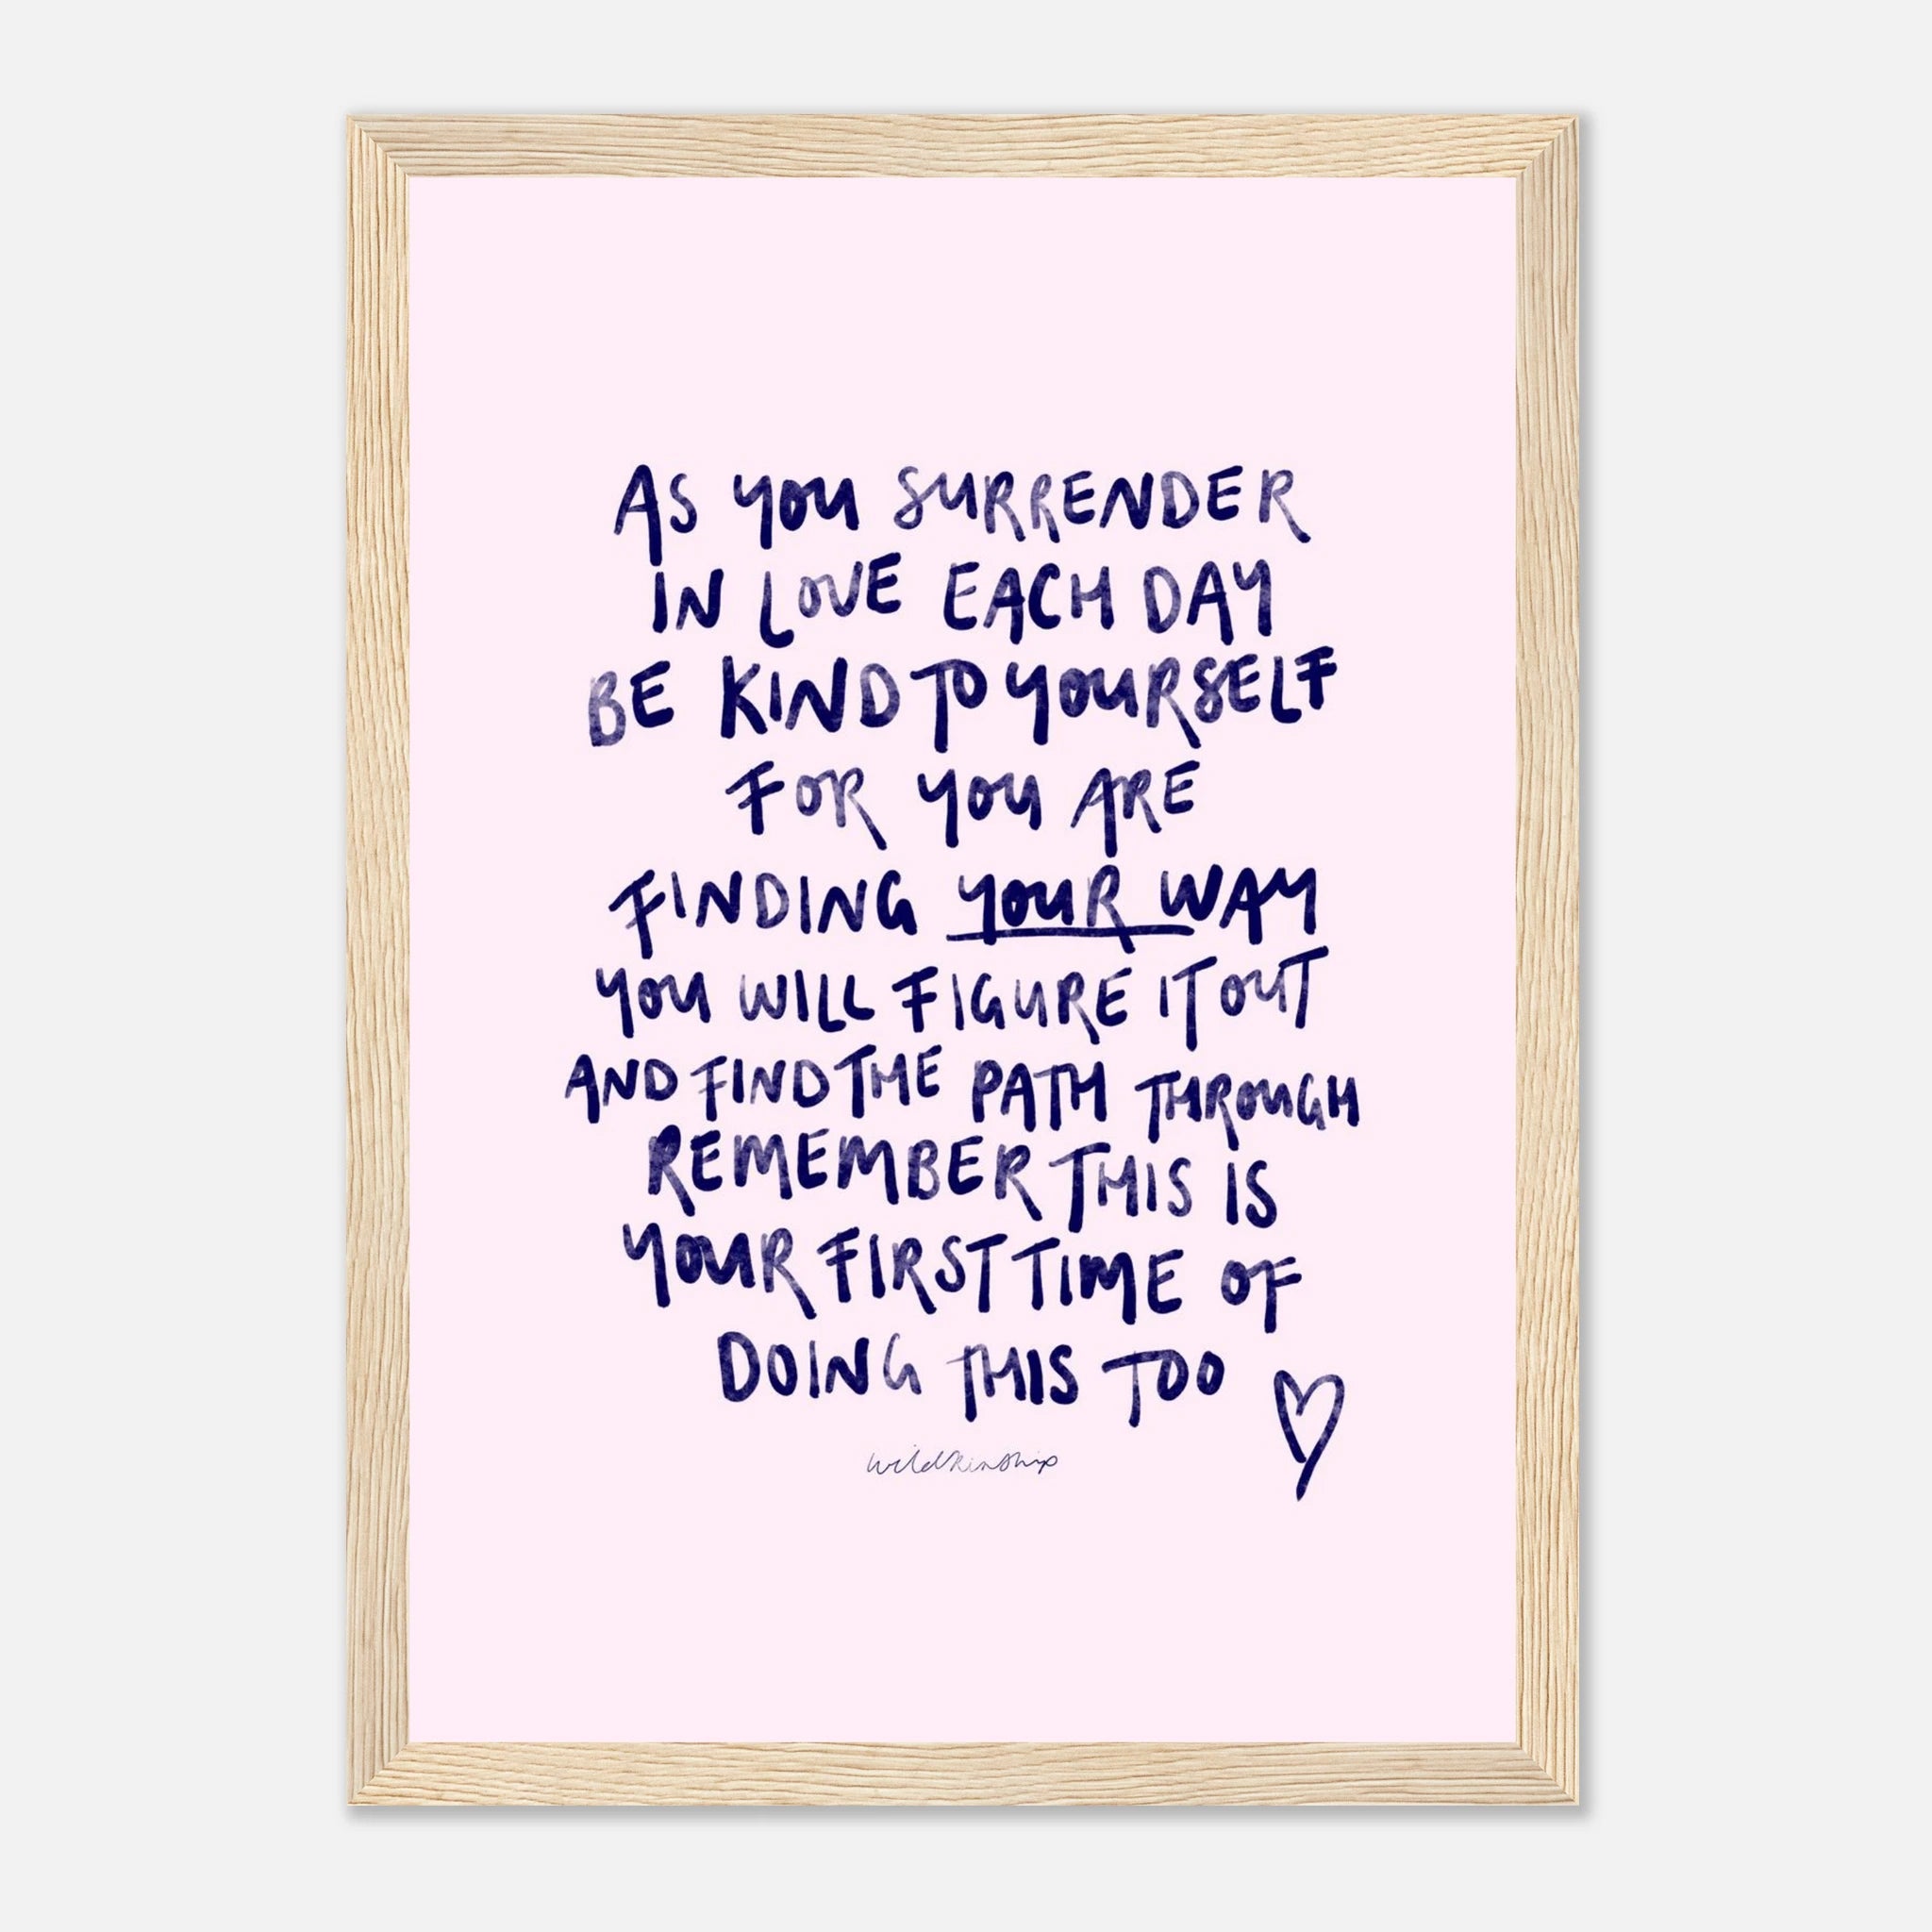 AS YOU SURRENDER
IN LOVE EACH DAY
BE KIND TO YOURSELF
FOR YOU ARE
FINDING YOUR WAY
YOU WILL FIGURE IT OUT
AND FIND THE PATH THROUGH
REMEMBER THIS IS
YOUR FIRST TIME OF
DOING THIS TOO
wildkinship